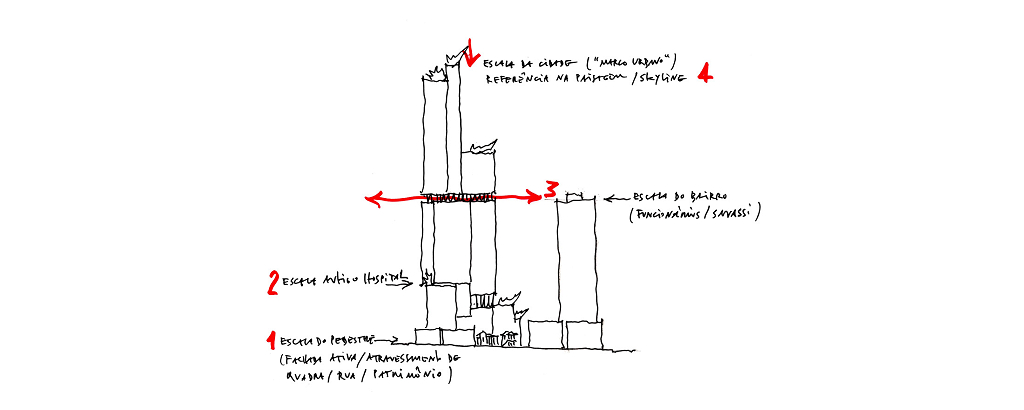 ESCALA DA CIDADE ("MARCO URBANO")
REFERÊNCIA NA PAISAGEM / SKYLINE 4
3
ESCALA DO BAIRRO
(FUNCIONÁRIOS / SAVASSI)
2 ESCALA ANTIGO HOSPITAL
1 ESCALA DO PEDESTRE
(FACHADA ATIVA / ATRAVESSMENT DE
QUADRA / RUA / PATRIMÔNIO)